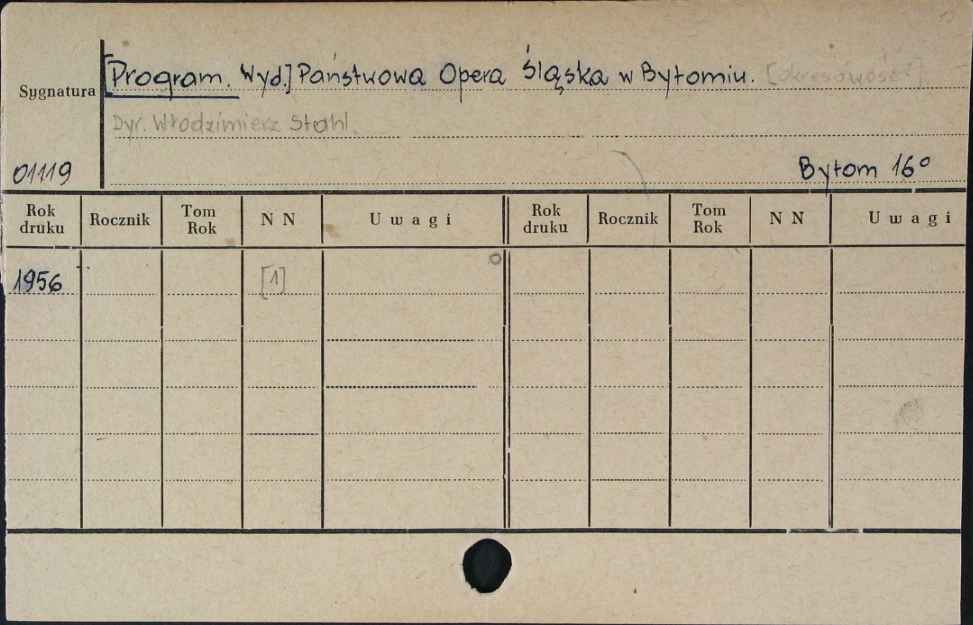 [Program. Wyd.] Państwowa Opera Śląska w Bytomiu. [okresowość?]
Sygnatura
Dyr. Włodzimierz Stahl.
01119
Bytom 16°
Rok druku Rocznik Tom Rok N N Uwagi Rok druku Rocznik Tom Rok N N Uwagi
1956 [1]